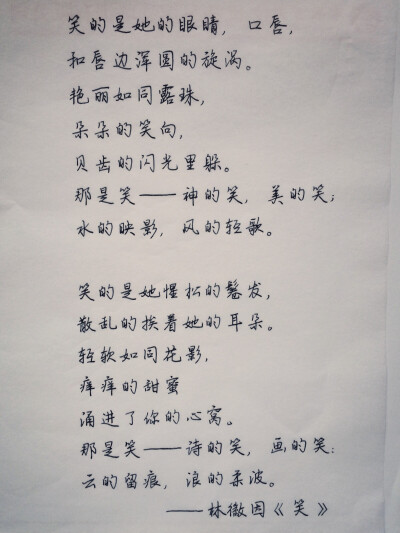 笑的是她的眼睛，口唇，
和唇边浑圆的旋涡。
艳丽如同露珠，
朵朵的笑向，
贝齿的闪光里躲。
那是笑——神的笑，美的笑；
水的映影，风的轻歌。
笑的是她惺松的鬈发，
散乱的挨着她的耳朵。
轻软如同花影，
痒痒的甜蜜
涌进了你的心窝。
那是笑——诗的笑，画的笑；
云的留痕，浪的柔波。
——林徽因《笑》